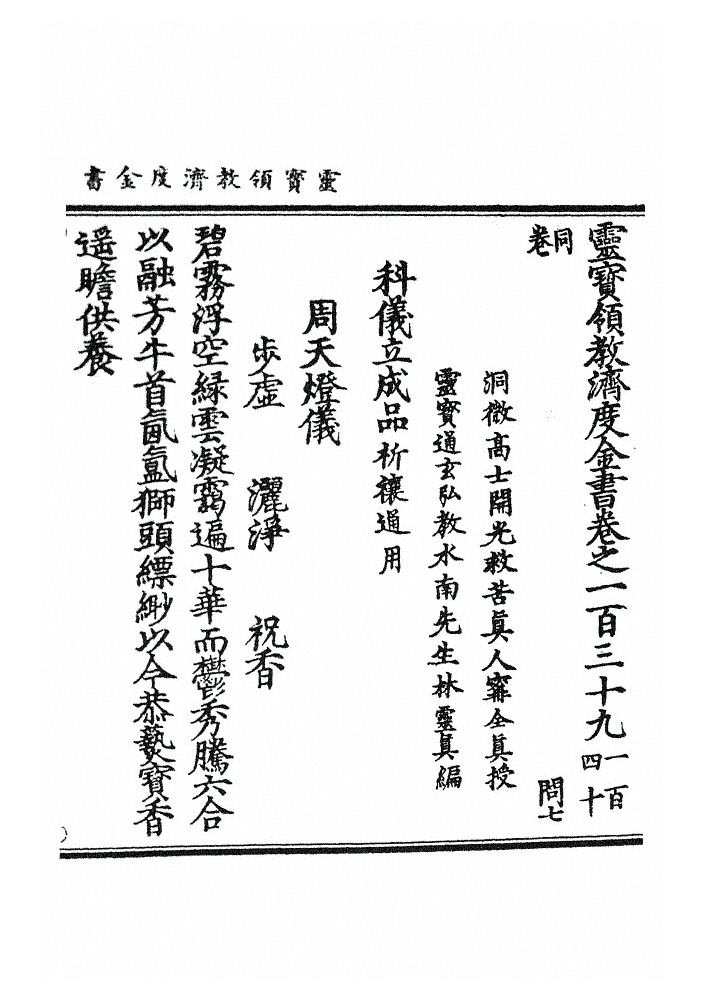 靈寶領教濟度金書
靈寶領教濟度金書卷之一百三十九一百四十
同卷 問七
洞微高士開光救苦眞人甯全眞授
靈寶通玄弘教水南先生林靈眞編
科儀立成品祈禳通用
周天燈儀
步虛 灑淨 祝香
碧霧浮空綠雲凝靄遍十華而鬱秀騰六合
以融芳牛首氤氳獅頭縹緲以今恭爇寶香
遥瞻供養